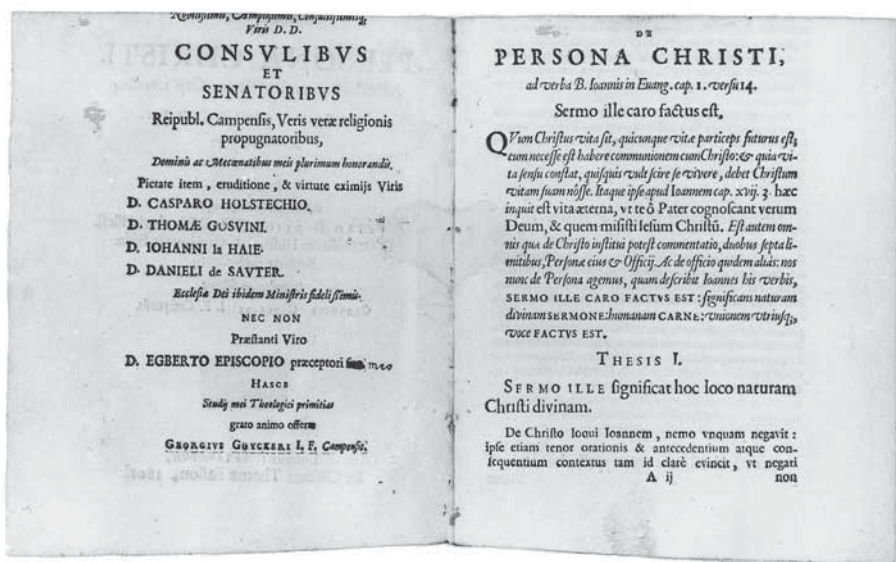 Nobilissimis, Amplissimis, Consultissimisq;
Viris D. D.
CONSVLIBVS
ET
SENATORIBVS
Reipubl. Campenſis, Veris veræ religionis
propugnatoribus,
Dominis ac Mecœnatibus meis plurimum honorandis.
Pietate item, eruditione, & virtute eximijs Viris
D. CASPARO HOLSTECHIO.
D. THOMÆ GOSVINI.
D. IOHANNI la HAIE.
D. DANIELI de SAVTER.
Eccleſiæ Dei ibidem Miniſtris fideliſſimis.
NEC NON
Præſtanti Viro
D. EGBERTO EPISCOPIO præceptori meo
HASCE
Studij mei Theologici primitias
grato animo offert
GEORGIVS GOYCKERI I. F. Campenſis.
DE
PERSONA CHRISTI,
ad verba B. Ioannis in Euang. cap. 1. verſu 14.
Sermo ille caro factus eſt.
QVum Chriſtus vita ſit, quicunque vitæ particeps futurus eſt,
eum neceſſe eſt habere communionem cum Chriſto: & quia vi-
ta ſenſu conſtat, quiſquis vult ſcire ſe vivere, debet Chriſtum
vitam ſuam nôſſe. Itaque ipſe apud Ioannem cap. xvij. 3. hæc
inquit eſt vita æterna, vt te ô Pater cognoſcant verum
Deum, & quem miſiſti Ieſum Chriſtū. Eſt autem om-
nis quæ de Chriſto inſtitui poteſt commentatio, duobus ſepta li-
mitibus, Perſonæ eius & Officij. Ac de officio quidem aliàs: nos
nunc de Perſona agemus, quam deſcribit Ioannes his verbis,
SERMO ILLE CARO FACTVS EST: ſignificans naturam
divinam SERMONE: humanam CARNE: vnionem vtriuſq;,
voce FACTVS EST.
THESIS I.
SERMO ILLE ſignificat hoc loco naturam
Chriſti divinam.
De Chriſto loqui Ioannem, nemo vnquam negavit:
ipſe etiam tenor orationis & antecedentium atque con-
ſequentium contextus tam id clarè evincit, vt negari
A ij non